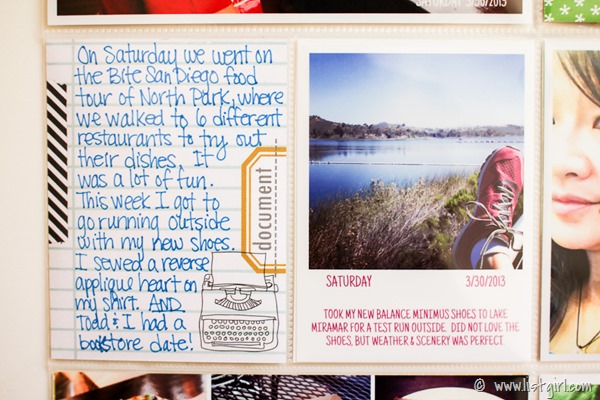 SATURDAY 3/30/2013
On Saturday we went on
the Bite San Diego food
tour of North Park, where
we walked to 6 different
restaurants to try out
their dishes. It
was a lot of fun.
This week I got to
go running outside
with my new shoes.
I sewed a reverse
applique heart on
my shirt. AND
Todd & I had a
bookstore date!
document
SATURDAY 3/30/2013
TOOK MY NEW BALANCE MINIMUS SHOES TO LAKE
MIRAMAR FOR A TEST RUN OUTSIDE. DID NOT LOVE THE
SHOES, BUT WEATHER & SCENERY WAS PERFECT.
© www.listgirl.com